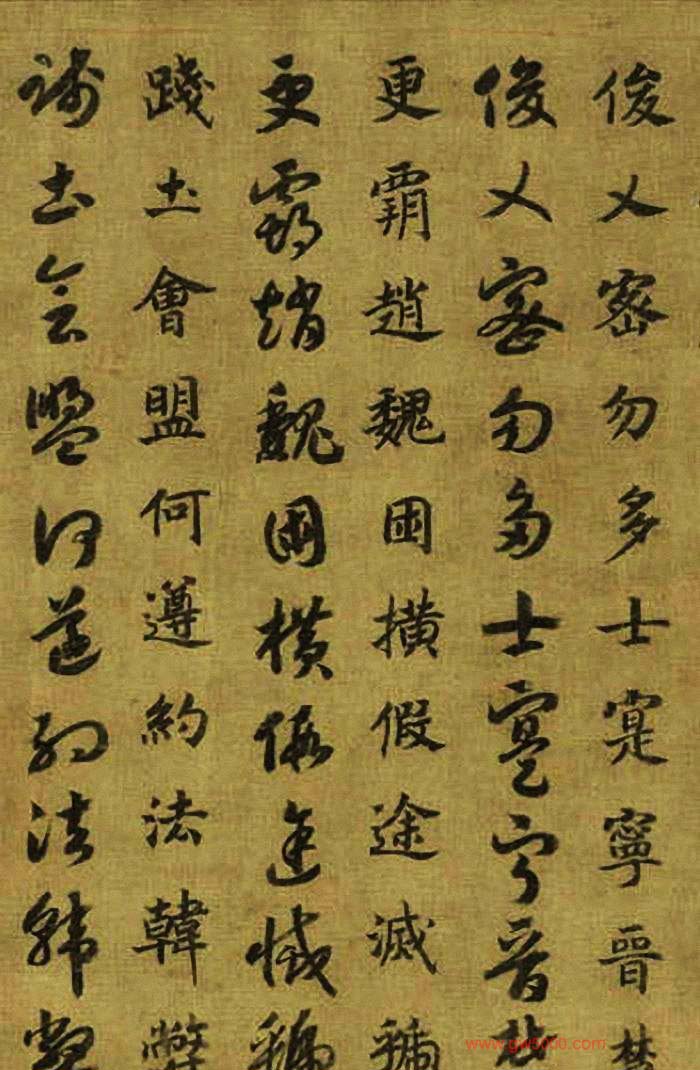 俊乂密勿多士寔寧晉楚
俊乂密勿多士寔寧晉楚
更霸趙魏困撗假途滅虢
更霸趙魏困橫假途滅虢
踐土會盟何遵約法韓弊
踐土會盟何遵約法韓弊